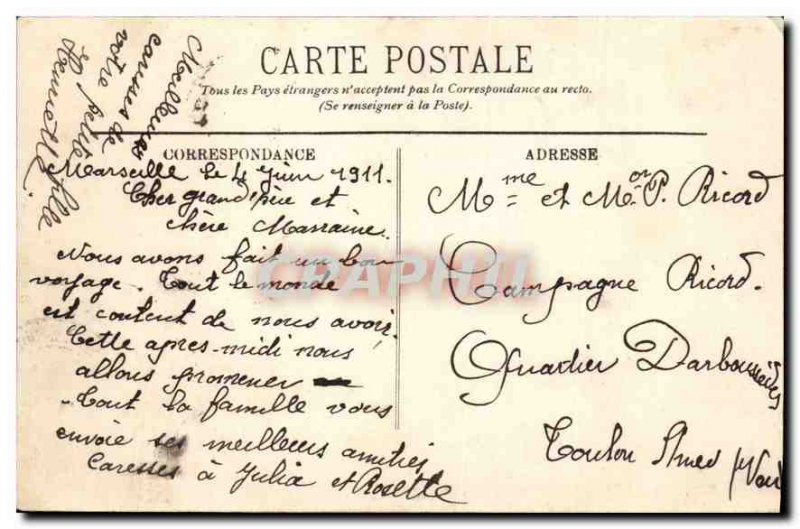 CARTE POSTALE
Tous les Pays étrangers n'acceptent pas la Correspondance au recto.
(Se renseigner à la Poste).
CORRESPONDANCE
Marseille le 4 Juin 1911.
Cher grand'père et
chère Marraine.
Nous avons fait un bon
voyage. Tout le monde
est content de nous avoir.
Cette après-midi nous
allons promener
Tout la famille vous
envoie ses meilleurs amitiés
Caresses à Julia et Rosette
Meilleures
caresses de
votre petite
fille
Henriette
ADRESSE
Mme et Mor P. Ricord
Campagne Ricord.
Quartier Darboussèdes
Toulon (Var)
CPAPHIL